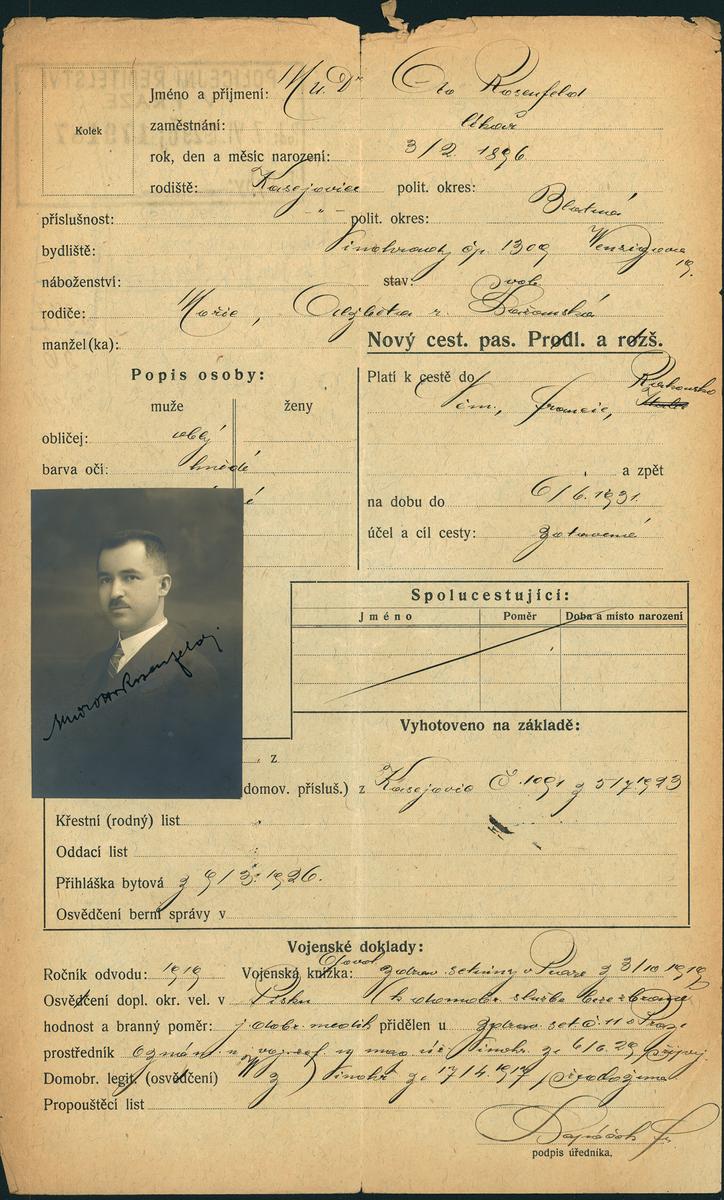 Kolek
Jméno a příjmení: MUDr Oto Rosenfeld
zaměstnání: lékař
rok, den a měsíc narození: 3/2. 1896
rodiště: Kasejovice polit. okres: Blatná
příslušnost: -"- polit. okres:
bydliště: Vinohrady čp. 1309 Wenzigova 19.
náboženství: stav: svob.
rodiče: Mořic, Alžběta r.
manžel(ka):
Nový cest. pas. Prodl. a rozš.
Popis osoby:
muže ženy
obličej: oblý
barva očí: hnědé
Platí k cestě do Rakousko
Něm., Francie,
a zpět
na dobu do 6/6. 1931.
účel a cíl cesty: zotavená
Spolucestující:
Jméno Poměr Doba a místo narození
MUDr Otto Rosenfeld
Vyhotoveno na základě:
z
domov. přísluš.) z Kasejovic Č. 1091 z 5/7 1923
Křestní (rodný) list
Oddací list
Přihláška bytová z 9/3. 1926.
Osvědčení berní správy v
Vojenské doklady:
Ročník odvodu: 1919 Vojenská knížka: zdrav. v Praze z 3/10 1919
Osvědčení dopl. okr. vel. v Písku k domobr. službě beze zbraně
hodnost a branný poměr: j. dobr. medik přidělen u zdrav. set. č. 11 v Praze
prostředník Vinohr. ze 6/6. 29
Domobr. legit. (osvědčení) z Vinohr. ze 17/4. 1917
Propouštěcí list
podpis úředníka.